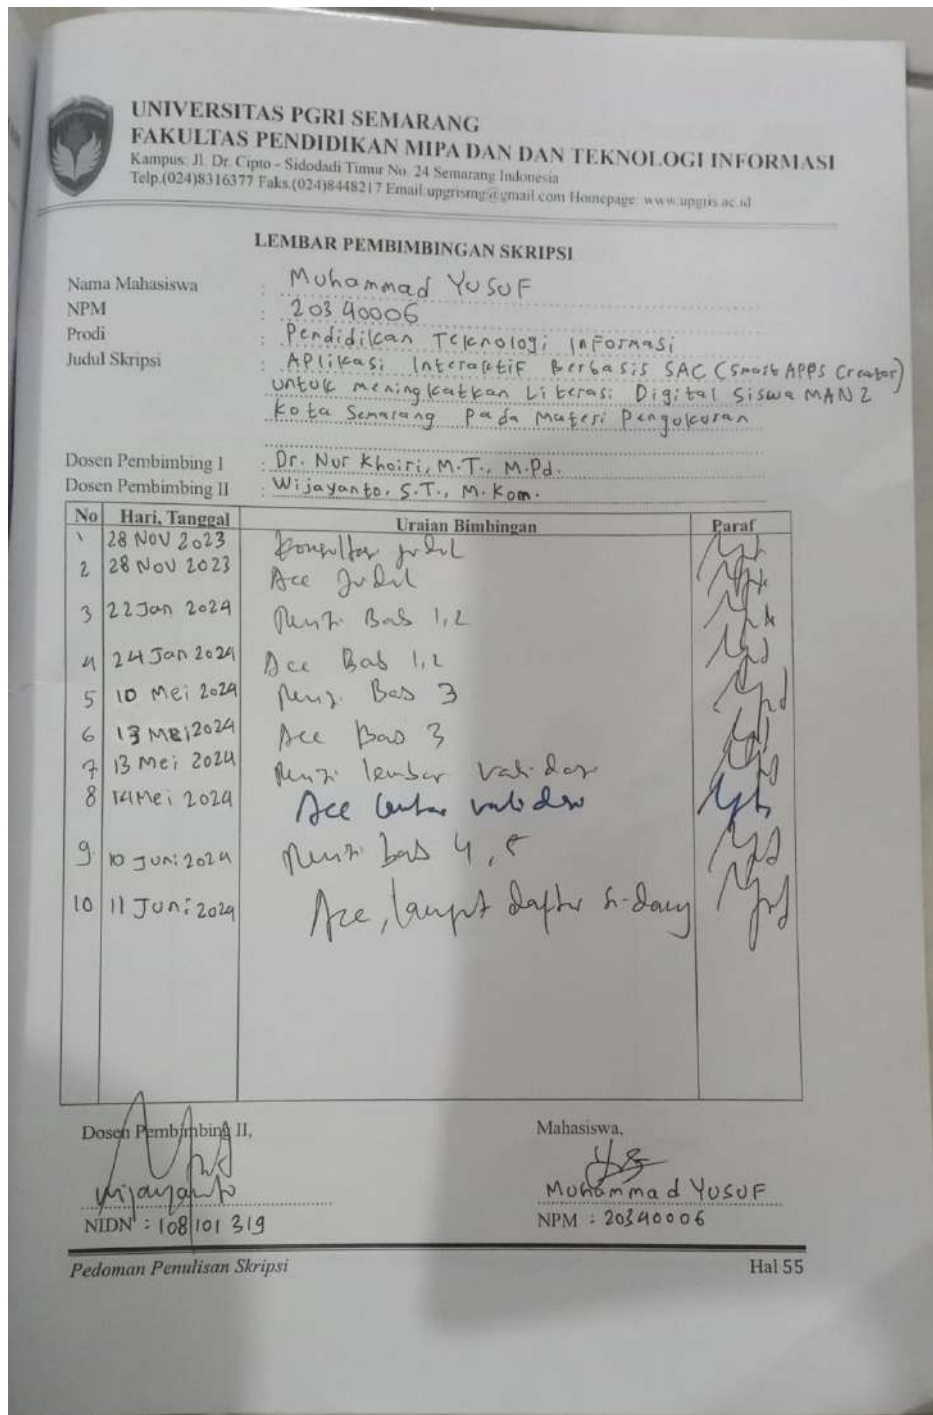 UNIVERSITAS PGRI SEMARANG
FAKULTAS PENDIDIKAN MIPA DAN DAN TEKNOLOGI INFORMASI
Kampus: Jl. Dr. Cipto - Sidodadi Timur No. 24 Semarang Indonesia
Telp.(024)8316377 Faks.(024)8448217 Email:upgrismg@gmail.com Homepage: www.upgris.ac.id
LEMBAR PEMBIMBINGAN SKRIPSI
Nama Mahasiswa : Muhammad YUSUF
NPM : 20340006
Prodi : Pendidikan Teknologi Informasi
Judul Skripsi : Aplikasi Interaktif Berbasis SAC (Smart APPS Creator)
untuk meningkatkan Literasi Digital Siswa MAN 2
Kota Semarang Pada Materi Pengukuran
Dosen Pembimbing I : Dr. Nur Khoiri, M.T., M.Pd.
Dosen Pembimbing II : Wijayanto, S.T., M.Kom.
No Hari, Tanggal Uraian Bimbingan Paraf
1 28 NOV 2023 Konsultasi judul
2 28 NOV 2023 Acc Judul
3 22 Jan 2024 Revisi Bab 1,2
4 24 Jan 2024 Acc Bab 1,2
5 10 Mei 2024 Revisi Bab 3
6 13 Mei 2024 Acc Bab 3
7 13 Mei 2024 Revisi lembar validasi
8 14 Mei 2024 Acc lembar validasi
9. 10 Juni 2024 Revisi bab 4, 5
10 11 Juni 2024 Acc, lanjut daftar sidang
Dosen Pembimbing II, Mahasiswa,
Wijayanto Muhammad YUSUF
NIDN : 108101319 NPM : 20340006
Pedoman Penulisan Skripsi Hal 55